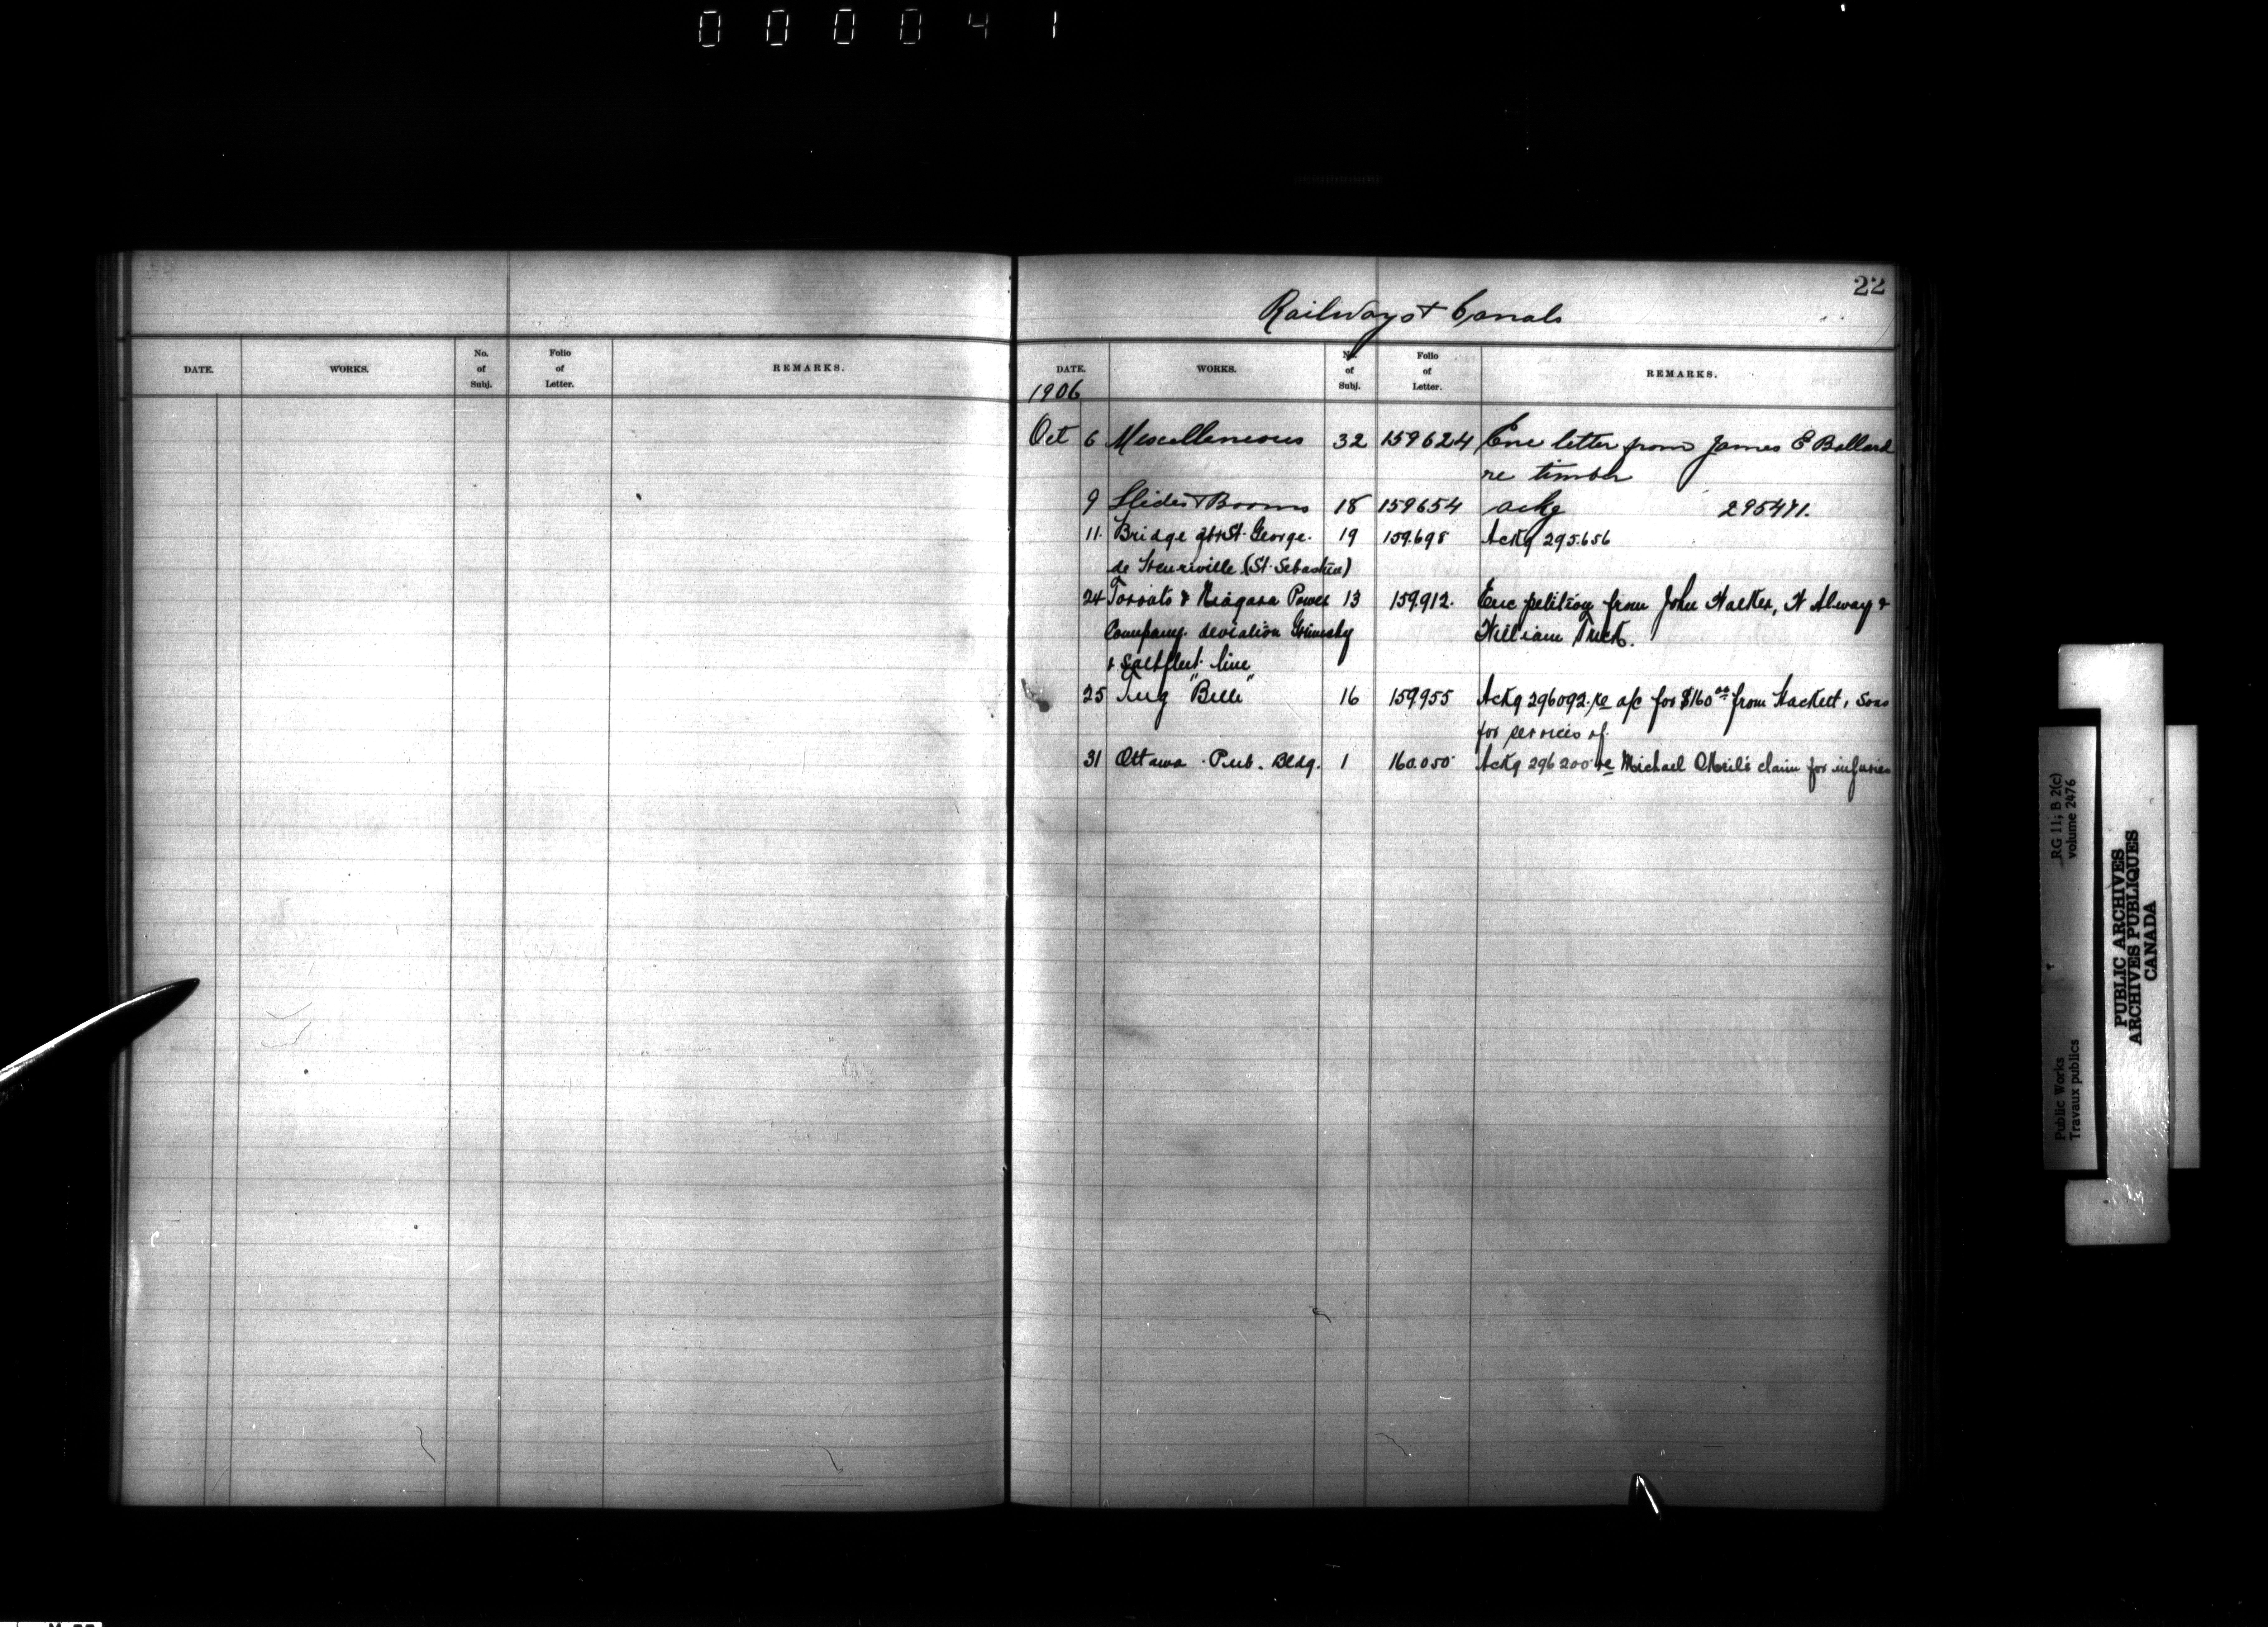 0 0 0 0 4 1
22
Railways & Canals
DATE. WORKS. No. of Subj. Folio of Letter. REMARKS.
DATE. WORKS. No. of Subj. Folio of Letter. REMARKS.
1906
Oct 6 Miscellaneous 32 159624 Enc letter from James E Ballard
re timber
9 Slides & Booms 18 159654 ackg 295471.
11. Bridge St. George. 19 159.698 Ackg 295.656
de Henriville (St. Sebastien)
24 Toronto & Niagara Power 13 159.912. Enc petition from John Walker, H Alway &
Company. deviation Grimsby William Tuck.
& Saltfleet line
25 Tug "Belle" 16 159955 Ackg 296092. re a/c for $160 00 from Hackett, Sons
for services of.
31 Ottawa. Pub. Bldg. 1 160.050 Ackg 296200 re Michael ONeil's claim for injuries
RG 11; B 2(c)
volume 2476
Public Works
Travaux publics
PUBLIC ARCHIVES
ARCHIVES PUBLIQUES
CANADA